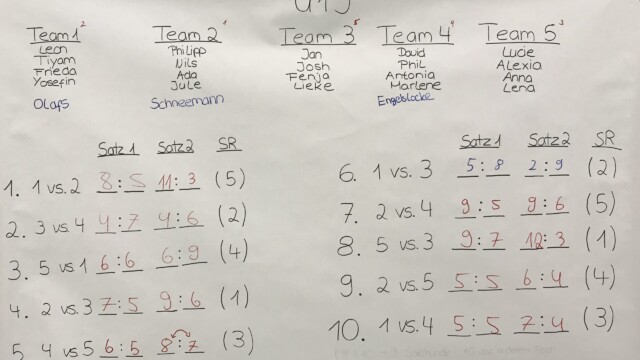 U15
Team 1 2
Leon
Tiyam
Frieda
Yosefin
Olafs
Team 2 1
Philipp
Nils
Ada
Jule
Schneemann
Team 3 5
Jan
Josh
Fenja
Lieke
Team 4 4
David
Phil
Antonia
Marlene
Engeblocke
Team 5 3
Lucie
Alexia
Anna
Lena
Satz 1 Satz 2 SR
1. 1 vs. 2 8:5 11:3 (5)
2. 3 vs. 4 4:7 4:6 (2)
3. 5 vs 1 6:6 6:9 (4)
4. 2 vs. 3 7:5 9:6 (1)
5 4 vs 5 6:5 8:7 (3)
Satz 1 Satz 2 SR
6. 1 vs. 3 5:8 2:9 (2)
7. 2 vs. 4 9:5 9:6 (5)
8. 5 vs. 3 9:7 12:3 (1)
9. 2 vs. 5 5:5 6:4 (4)
10. 1 vs. 4 5:5 7:4 (3)